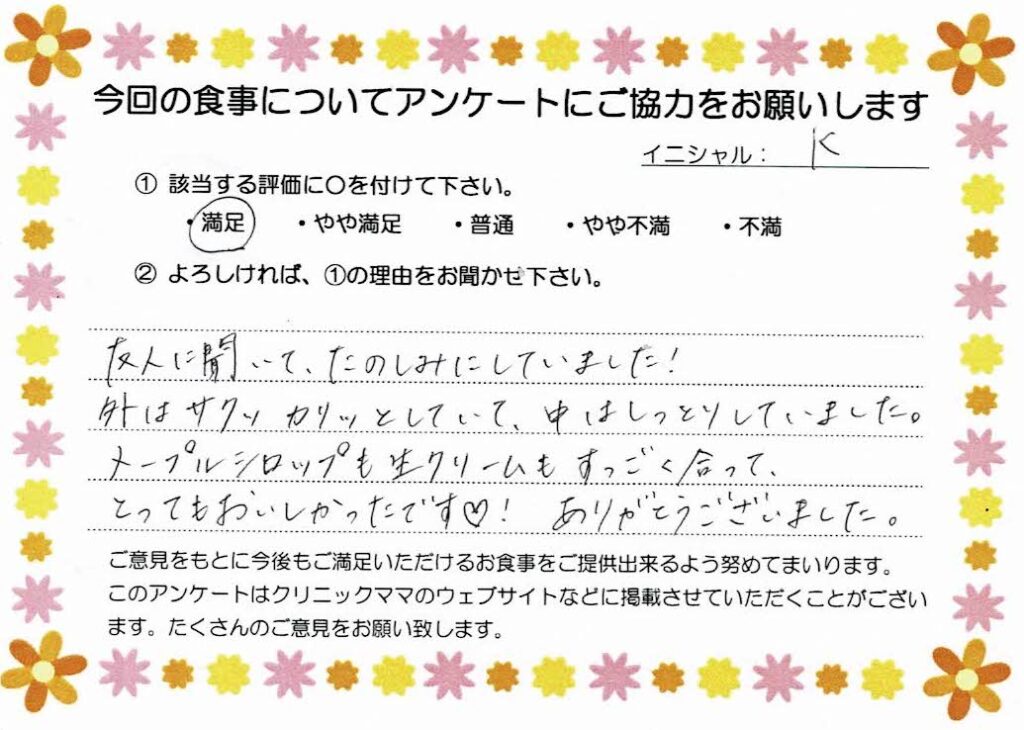 今回の食事についてアンケートにご協力をお願いします
イニシャル： K
① 該当する評価に○を付けて下さい。
・満足 ・やや満足 ・普通 ・やや不満 ・不満
② よろしければ、①の理由をお聞かせ下さい。
友人に聞いて、たのしみにしていました！
外はサクッ カリッとしていて、中はしっとりしていました。
メープルシロップも生クリームもすっごく合って、
とってもおいしかったです♡！ ありがとうございました。
ご意見をもとに今後もご満足いただけるお食事をご提供出来るよう努めてまいります。
このアンケートはクリニックママのウェブサイトなどに掲載させていただくことがござい
ます。たくさんのご意見をお願い致します。